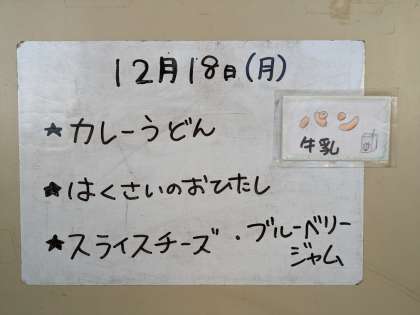 12月18日(月)
★カレーうどん
パン
牛乳
★はくさいのおひたし
★スライスチーズ・ブルーベリー
ジャム